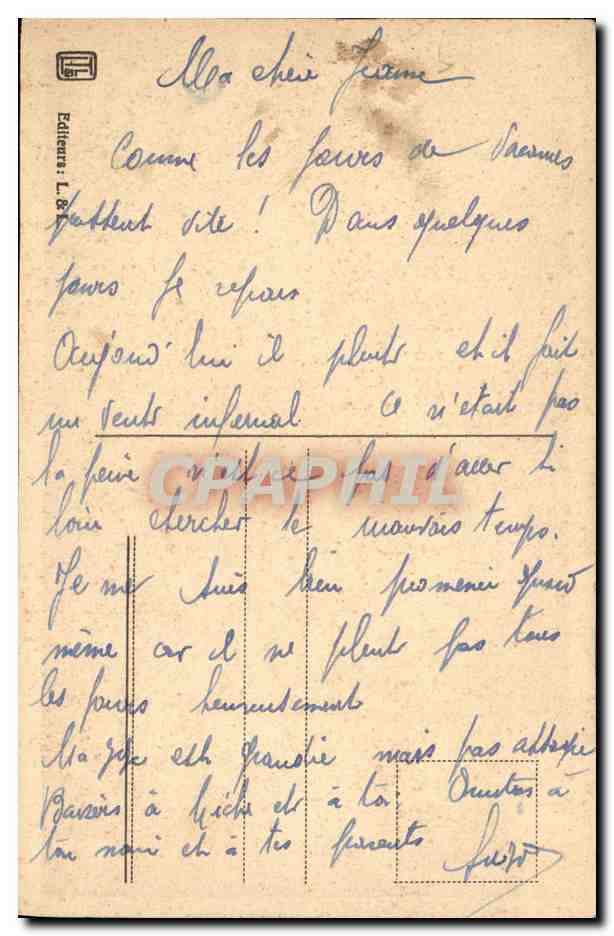 Ma chère Jeanne
Comme les jours de vacances
passent vite ! Dans quelques
jours je repars
Aujourd'hui il pleut et il fait
un vent infernal Ce n'était pas
la peine n'est ce pas d'aller si
loin chercher le mauvais temps.
Je me suis bien promenée quand
même car il ne pleut pas tous
les jours heureusement
est grandie mais pas
Baisers à et à toi Amitiés à
ton mari et à tes parents
Editeurs: L. &
CPAPHIL